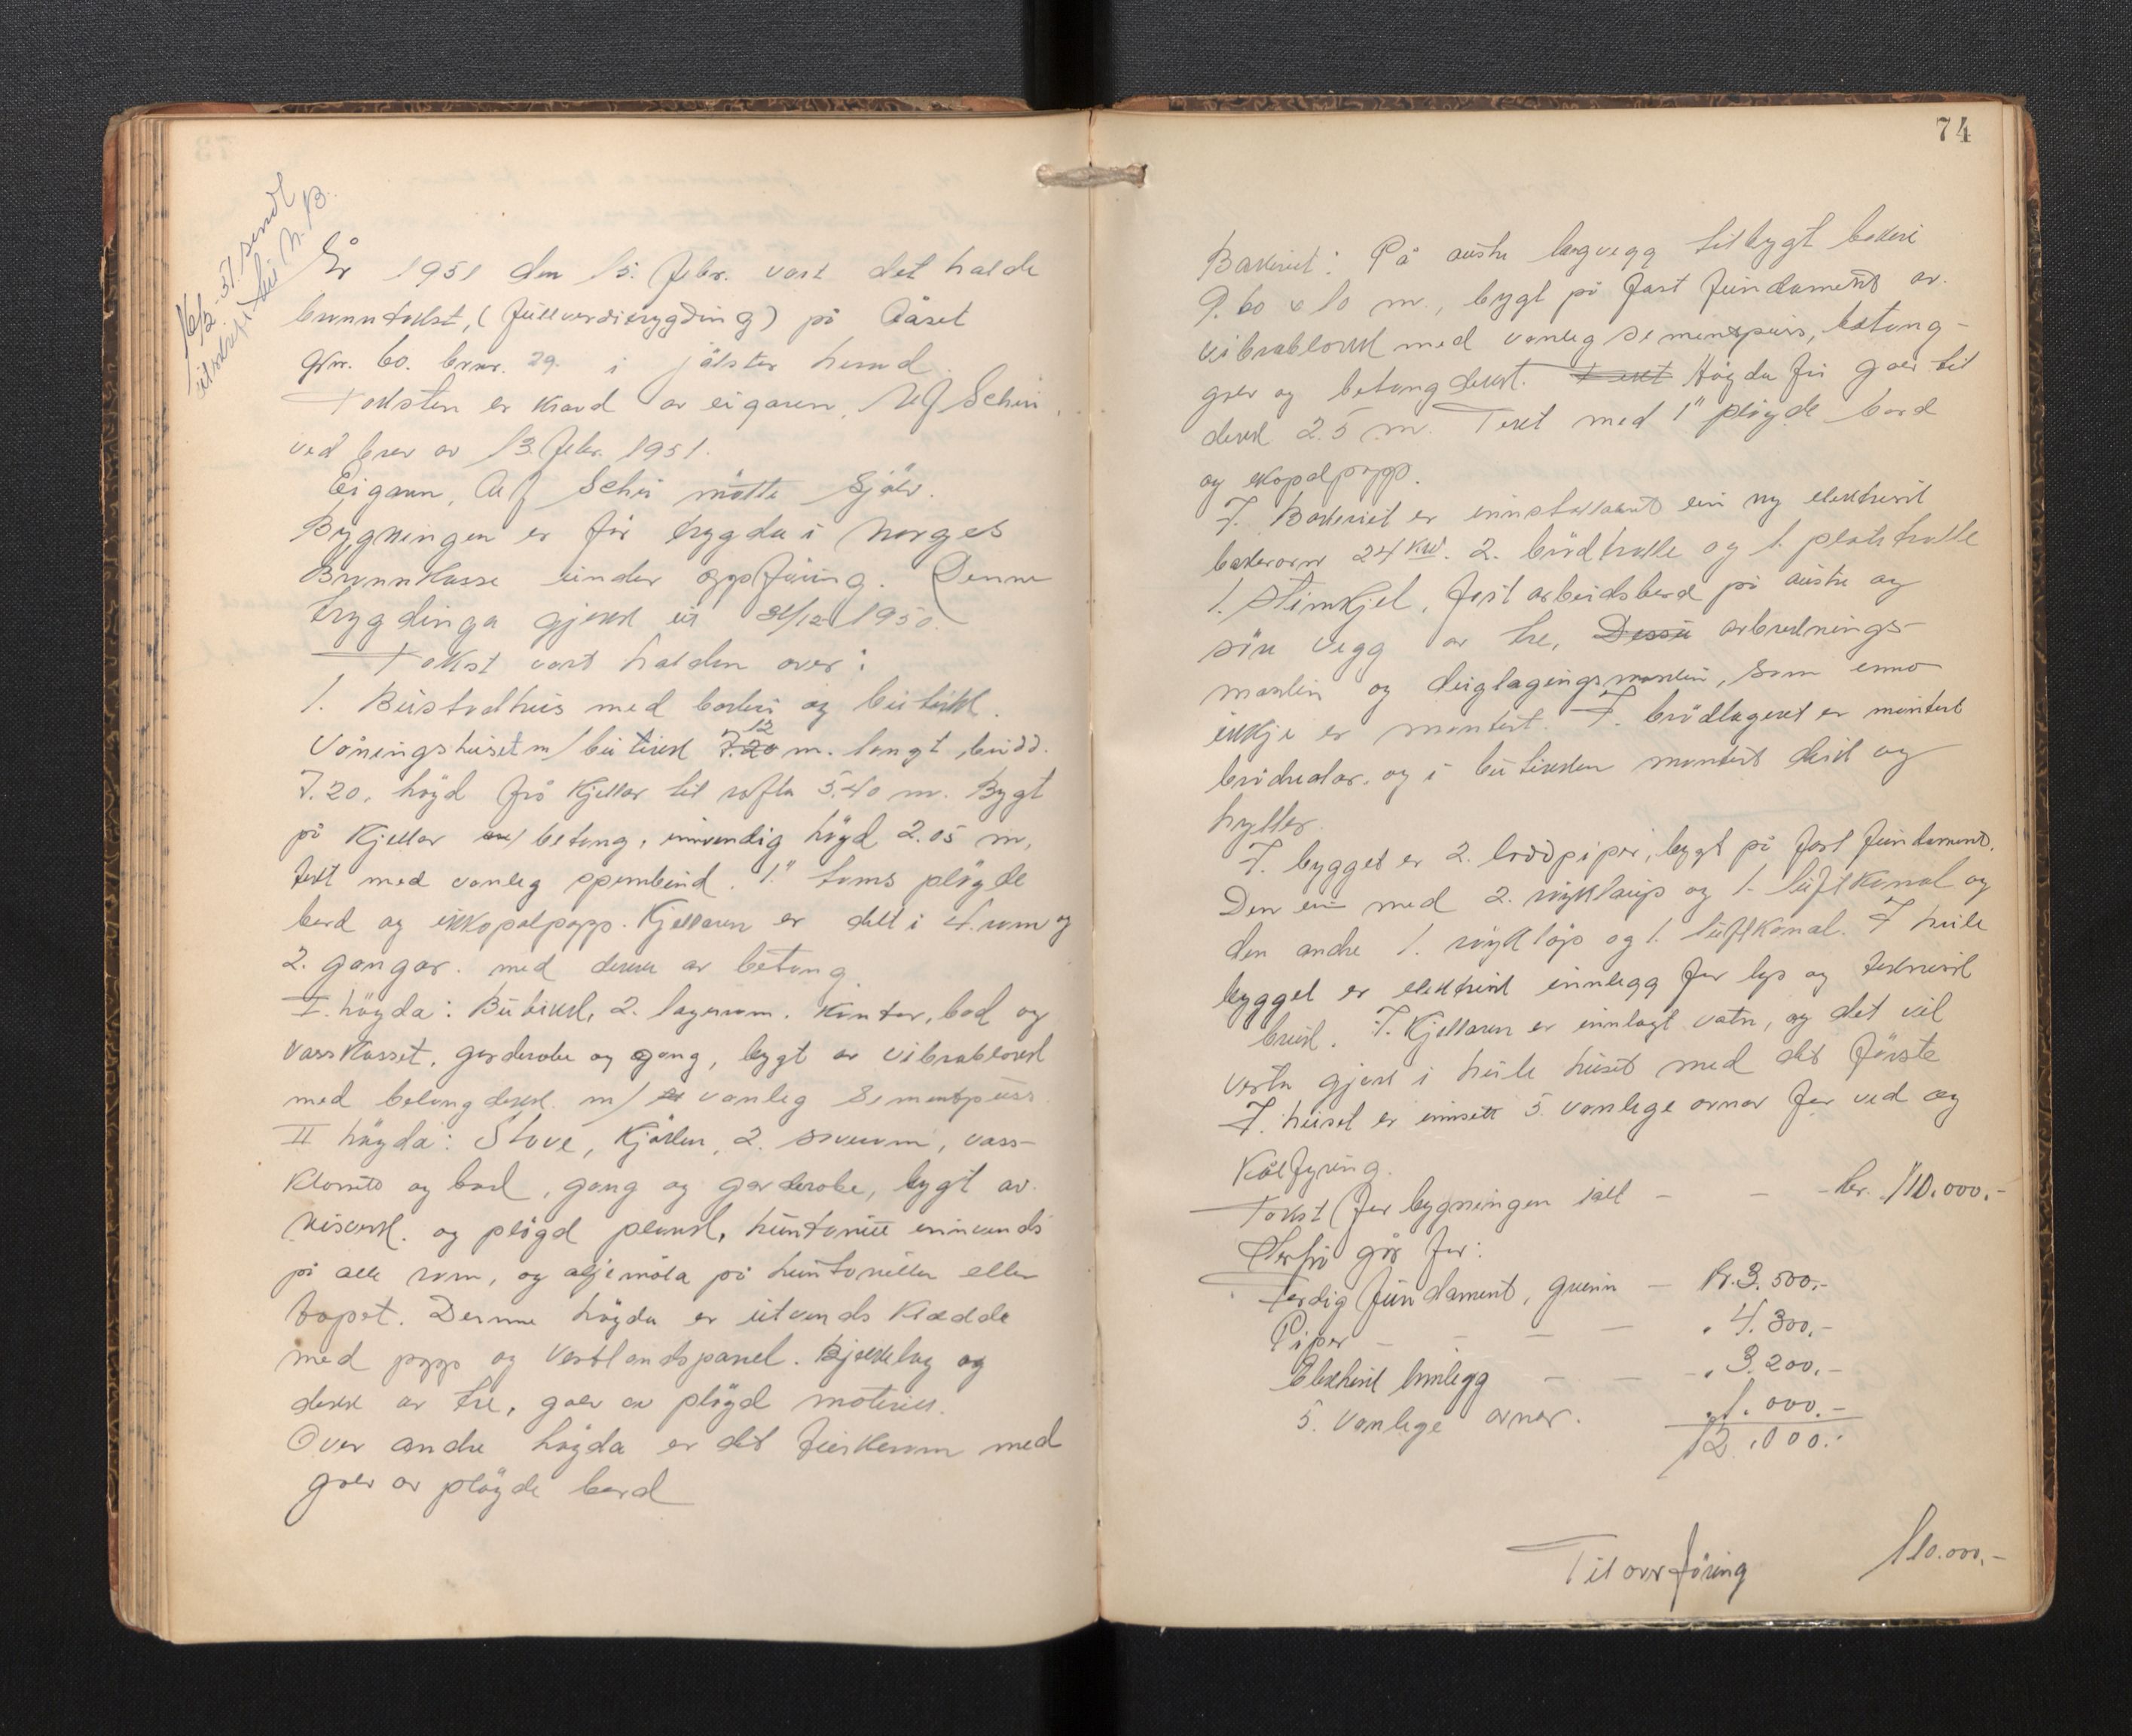 16/2-51 sendt
utskrift til N.B.
År 1951 den 15. febr. vart det halde
branntakst, (fullverditrygding) på Åaset
gnr. 60. brnr. 29. i Jölster herad.
Taksten er kravd av eigaren, Alf Schei,
ved brev av 13. febr. 1951.
Eigaren, Alf Schei mötte sjölv.
Bygningen er för trygda i Norges
Brannkasse under oppföring. Denne
trygdinga gjekk ut 31/12 1950.
Takst vart halden over:
1. Bustadhus med bakeri og butikk.
Våningshuset m/ butikk 7.20 12 m. langt, breidd.
7.20, högd frå kjellar til rafta 5.40 m. Bygt
på kjellar av betong, innvendig högd 2.05 m,
tekt med vanleg sperrebind. 1" toms plögde
bord og ekkopalpapp. Kjellaren er delt i 4. rom og
2. gangar. med dekke av betong.
I. högda: Butikk, 2. lagerrom. kontor, bad og
vassklosset, garderobe og gang, bygt av vibroblokk
med betongdekk. m/ vanleg sementpuss.
II högda: Stove, kjöken, 2. soverom, vass-
klosett og bad, gang og garderobe, bygt av
reisverk. og plögd plank, huntonitt innvends
på alle rom, og oljemåla på huntonitten eller
tapet. Denne högda er utvends kledde
med papp og Vestlandspanel. Bjelkelag og
dekk av tre, golv av plögd materiell.
Over andre högda er det turkerom med
golv av plögde bord
74
Bakeriet: På austre langvegg tilbygt bakeri
9.60 x 10 m., bygt på fast fundament av
vibroblokk med vanleg sementpuss, betong-
golv og betongdekk. Tekt Högda frå golv til
dekk 2.5 m. Tekt med 1" plögde bord
og ekopalpapp.
I. Bakeriet er innstallært ein ny elektrisk
bakerovn 24 kw. 2. brödtralle og 1. platetralle
1. Stimkjel, fast arbeidsbord på austre og
söre vegg av tre, Desse arbreidnings-
maskin og deiglagingsmaskin, som enno
ikkje er montert. I. brödlageret er montert
brödrealar. og i butikken montert disk og
hyller.
I. bygget er 2. brandpiper, bygt på fast fundament.
Den ein med 2. röyklaup og 1. luftkanal og
den andre 1. röykløp og 1. luftkanal. I heile
bygget er elektrisk innlegg for lys og teknisk
bruk. I. Kjellaren er innlagt vatn, og det vil
verta gjort i heile huset med det förste
I. huset er innsett 5. vanlege ovnar for ved og
kolfyring.
Takst for bygningen ialt - - kr. 110.000.-
Herfrå går for:
Ferdig fundament, grunn - kr. 3.500.-
Piper - - - - " 4.300.-
Elektrisk innlegg - - - " 3.200.-
5. vanlege ovnar. " 1.000.-
12.000.-
Til overföring 110.000.-